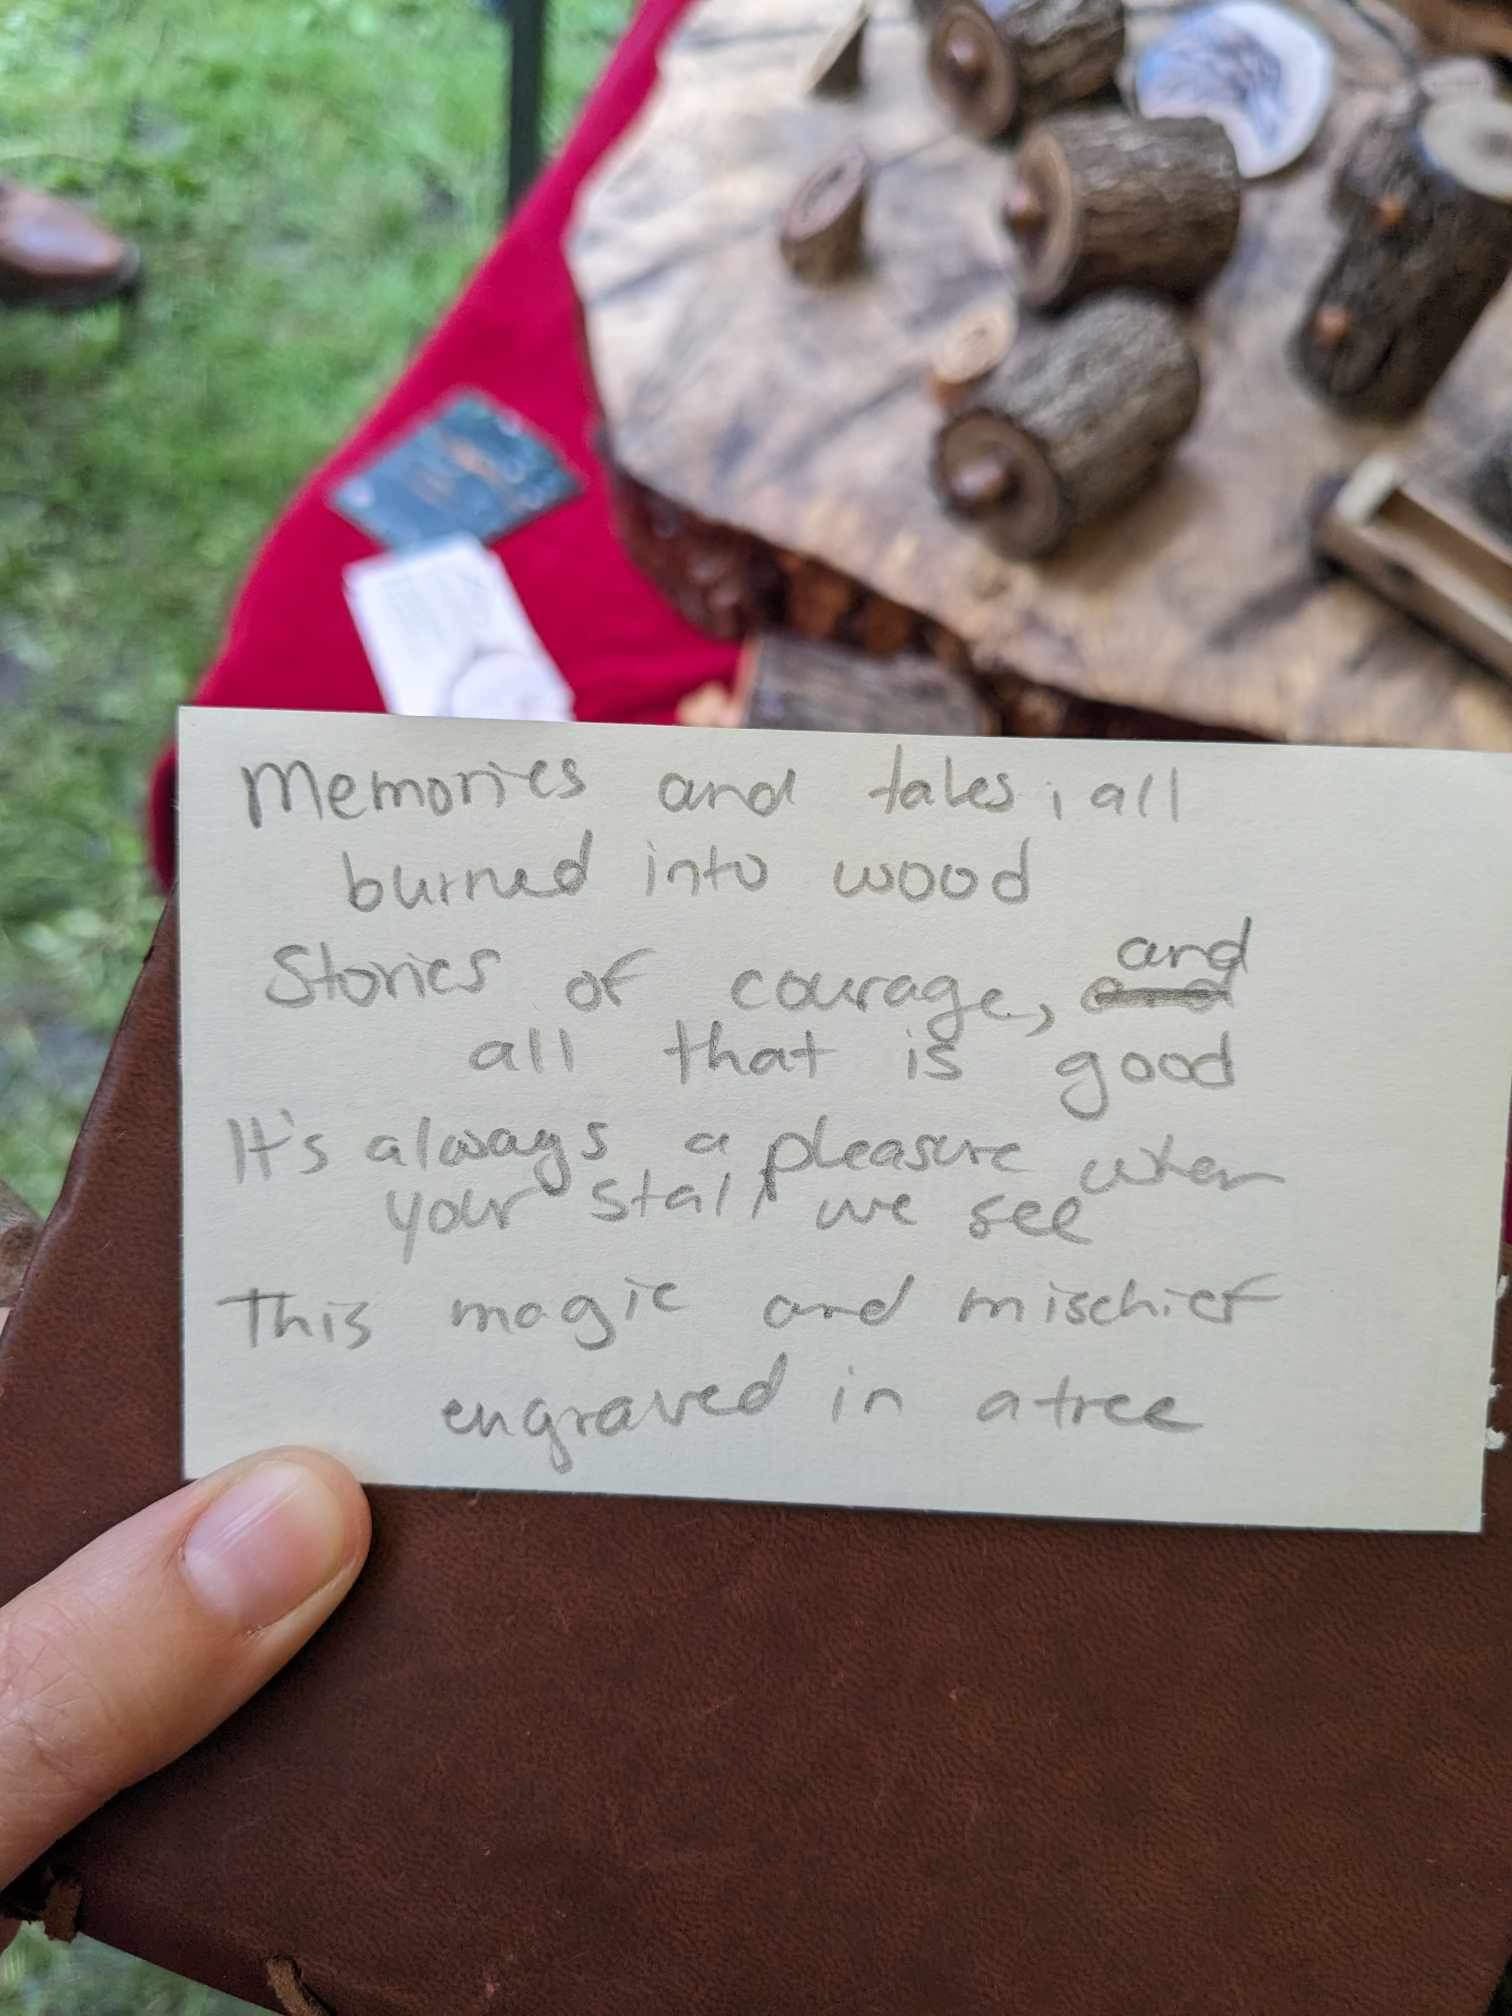 Memories and tales, all
burned into wood
Stories of courage, and
all that is good
It's always a pleasure when
your stall we see
This magic and mischief
engraved in a tree